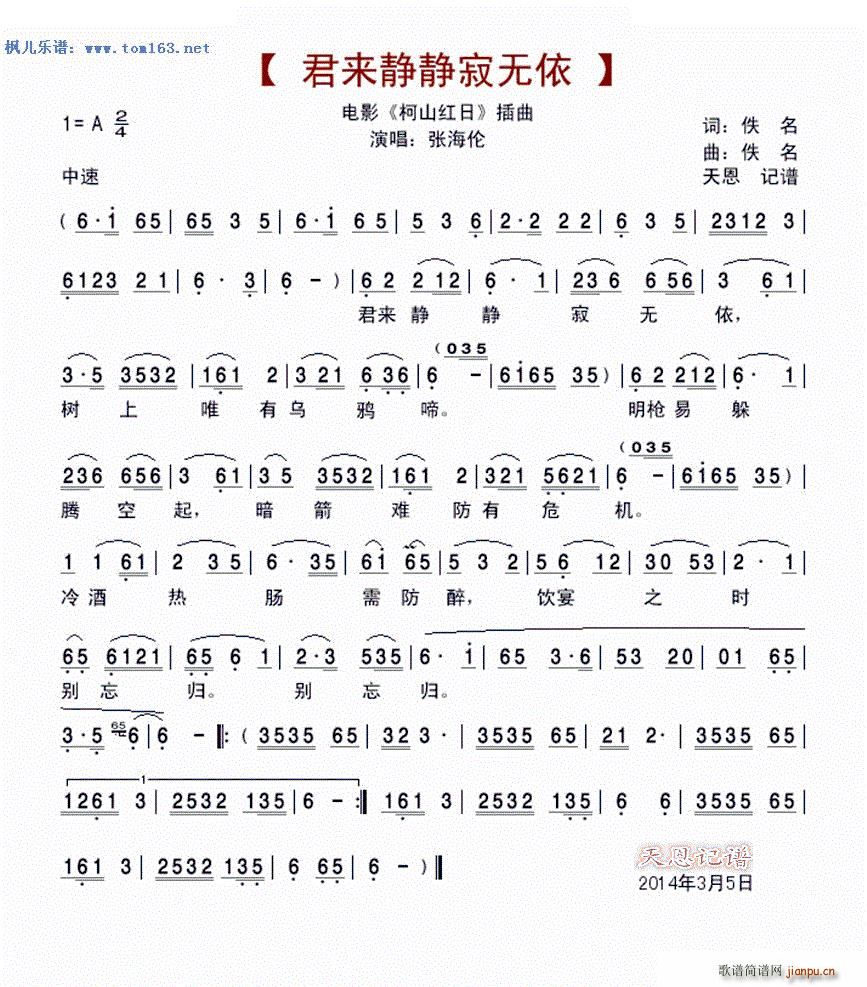 枫儿乐谱：www.tom163.net
【 君来静静寂无依 】
1=A 2/4
电影《柯山红日》插曲
演唱：张海伦
词：佚 名
曲：佚 名
中速
天恩 记谱
( 6·i 65 | 65 3 5 | 6·i 6 5 | 5 3 6 | 2·2 2 2 | 6 3 5 | 2312 3 |
6123 2 1 | 6 · 3 | 6 - ) | 6 2 2 12 | 6 · 1 | 23 6 6 56 | 3 6 1 |
君来 静 静 寂 无 依，
(035
3·5 3532 | 161 2 | 3 21 6 36 | 6 - | 6i65 35 ) | 6 2 212 | 6· 1 |
树 上 唯 有乌 鸦 啼。 明枪易 躲
(035
236 656 | 3 61 | 3 5 3532 | 161 2 | 321 5621 | 6 - | 6i65 35 ) |
腾 空 起， 暗 箭 难 防有 危 机。
1 1 61 | 2 35 | 6· 35 | 6i 65 | 5 3 2 | 56 12 | 30 53 | 2· 1 |
冷酒 热 肠 需防 醉， 饮宴 之 时
65 6121 | 65 6 1 | 2·3 535 | 6· i | 65 3·6 | 53 20 | 01 65 |
别 忘 归。 别 忘 归。
3·5 65 6 | 6 - |: ( 3535 65 | 32 3· | 3535 65 | 21 2· | 3535 65 |
1
1261 3 | 2532 135 | 6 - :| 161 3 | 2532 135 | 6 6 | 3535 65 |
161 3 | 2532 135 | 6 65 | 6 - ) |
天恩记谱
2014年3月5日
歌谱简谱网 jianpu.cn